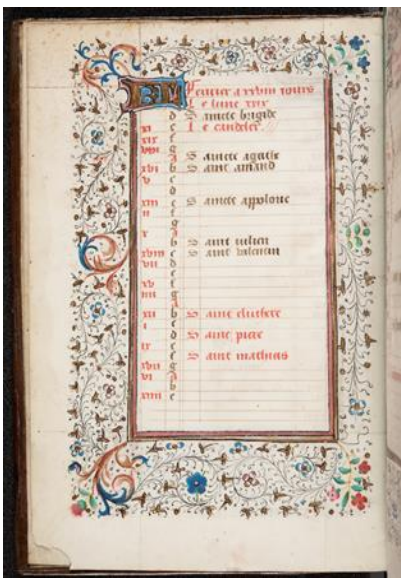 KL Feurier a xxviii iours
Le lune xxix
d Saincte brigide
xi e Le candeler
xix f
viii g
A Saincte agathe
xvi b Saint amand
v c
d
xiii e Saincte appolone
ii f
g
x A
b Saint iulien
xviii c Saint valentin
vii d
e
xv f
iiii g
A
xii b Saint
i c
d Saint piere
ix e
f Saint mathias
xvii g
vi A
b
xiiii c